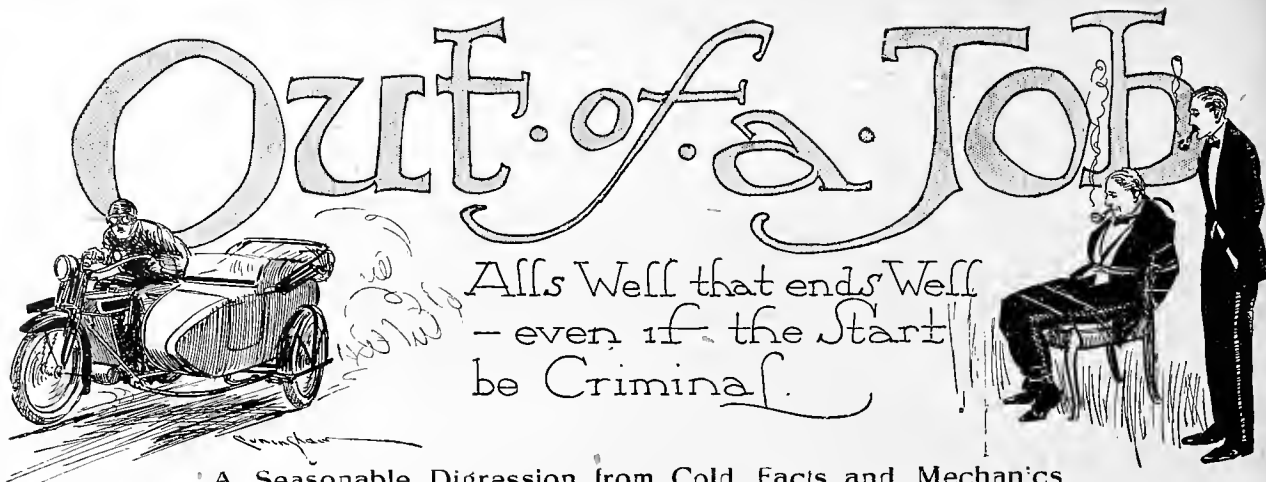 Out·of·a·Job
Alls Well that ends Well
– even if the Start
be Criminal.
A Seasonable Digression from Cold Facts and Mechanics